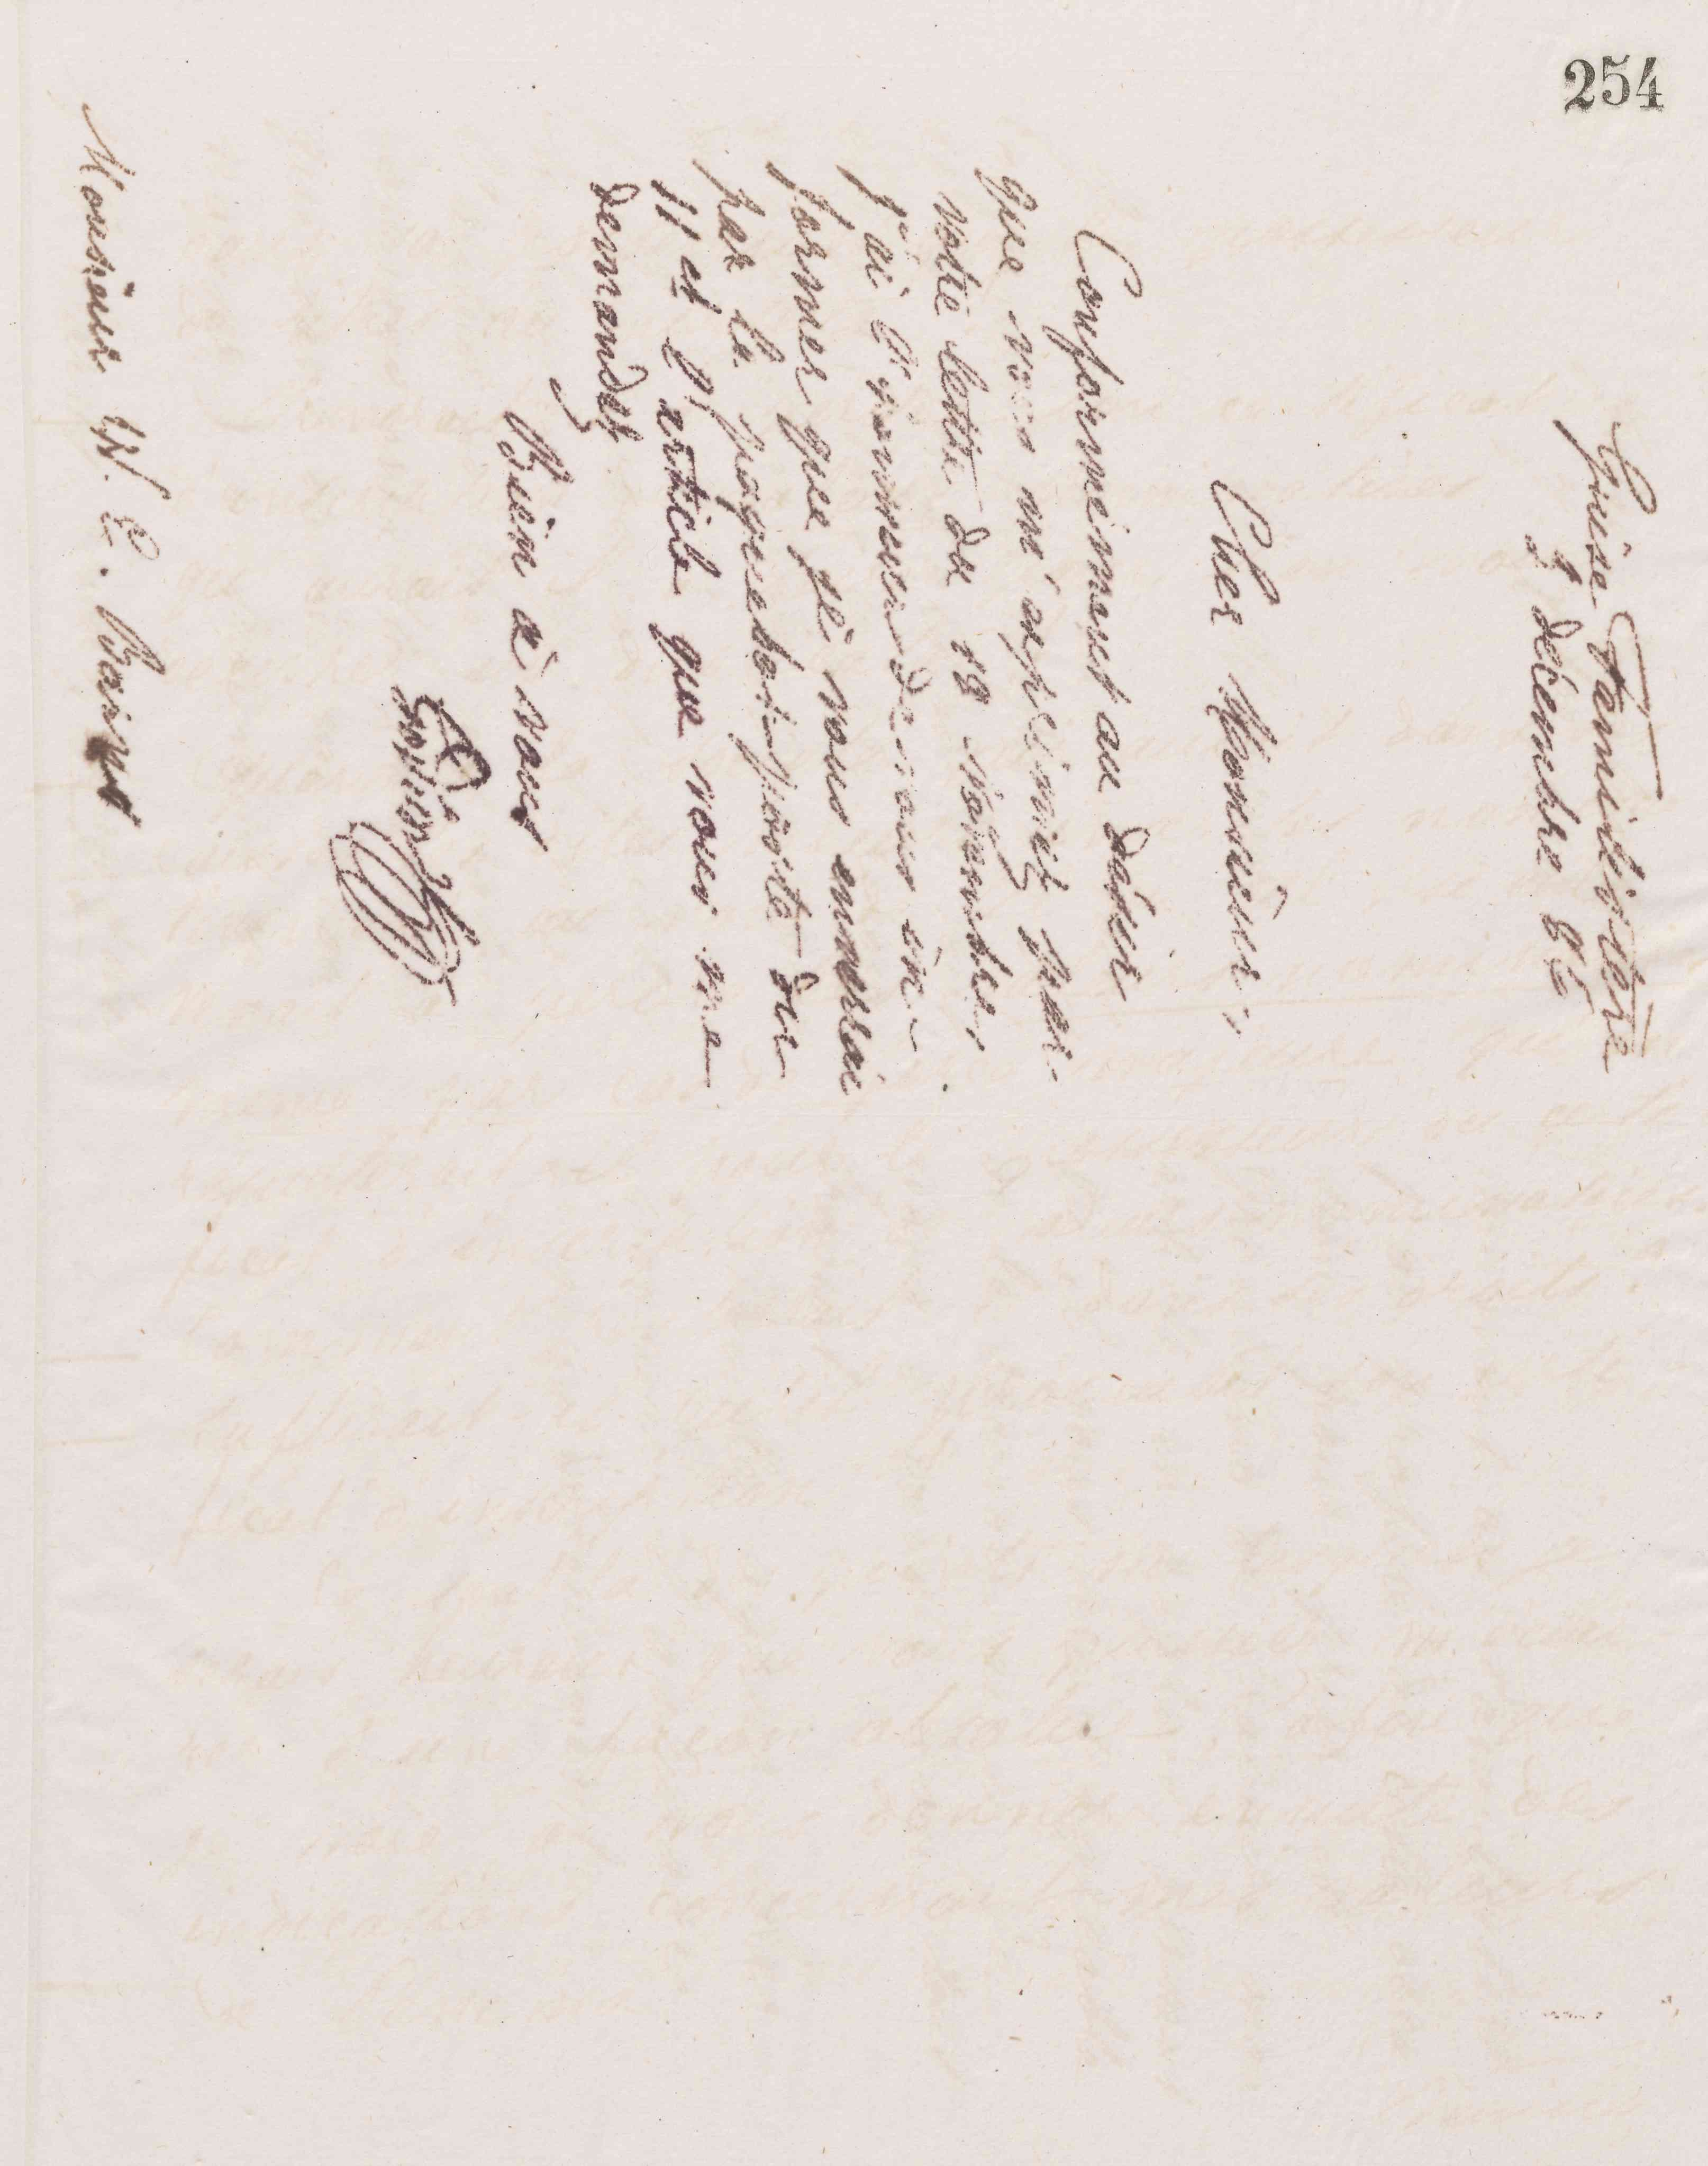 254
Guise Familistère
9 décembre 86
Cher Monsieur,
Conformément au désir
que vous m'exprimez par
votre lettre du 18 novembre,
j'ai l'honneur de vous in-
former que je vous enverrai
par le paquebot-poste du
11 ct l'article que vous me
demandez.
Bien à vous
Godin
Monsieur W. E. Barns